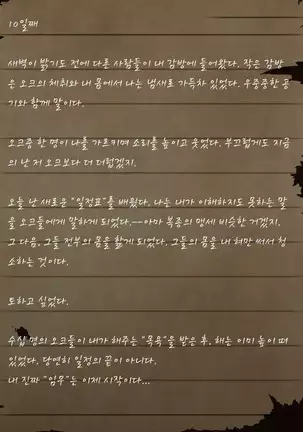 10일째
새벽이 밝기도 전에 다른 사람들이 내 감방에 들어왔다. 작은 감방
은 오크의 체취와 내 몸에서 나는 냄새로 가득차 있었다. 우중충한 공
기와 함께 말이다.
오크중 한 명이 나를 가르키며 소리를 높이고 웃었다. 부끄럽게도 지금
의 난 저 오크보다 더 더럽겠지.
오늘 난 새로운 "일정표"를 배웠다. 나는 내가 이해하지도 못하는 말
을 오크들에게 말하게 되었다.--아마 복종의 맹세 비슷한 거겠지.
그 다음, 그들 전부의 몸을 핥게 되었다. 그들의 몸을 내 혀만 써서 청
소하는 것이다.
토하고 싶었다.
수십 명의 오크들이 내가 해주는 "목욕"을 받은 후, 해는 이미 높이 떠
있었다. 당연히 일정의 끝이 아니다.
내 진짜 "임무"는 이제 시작이다...